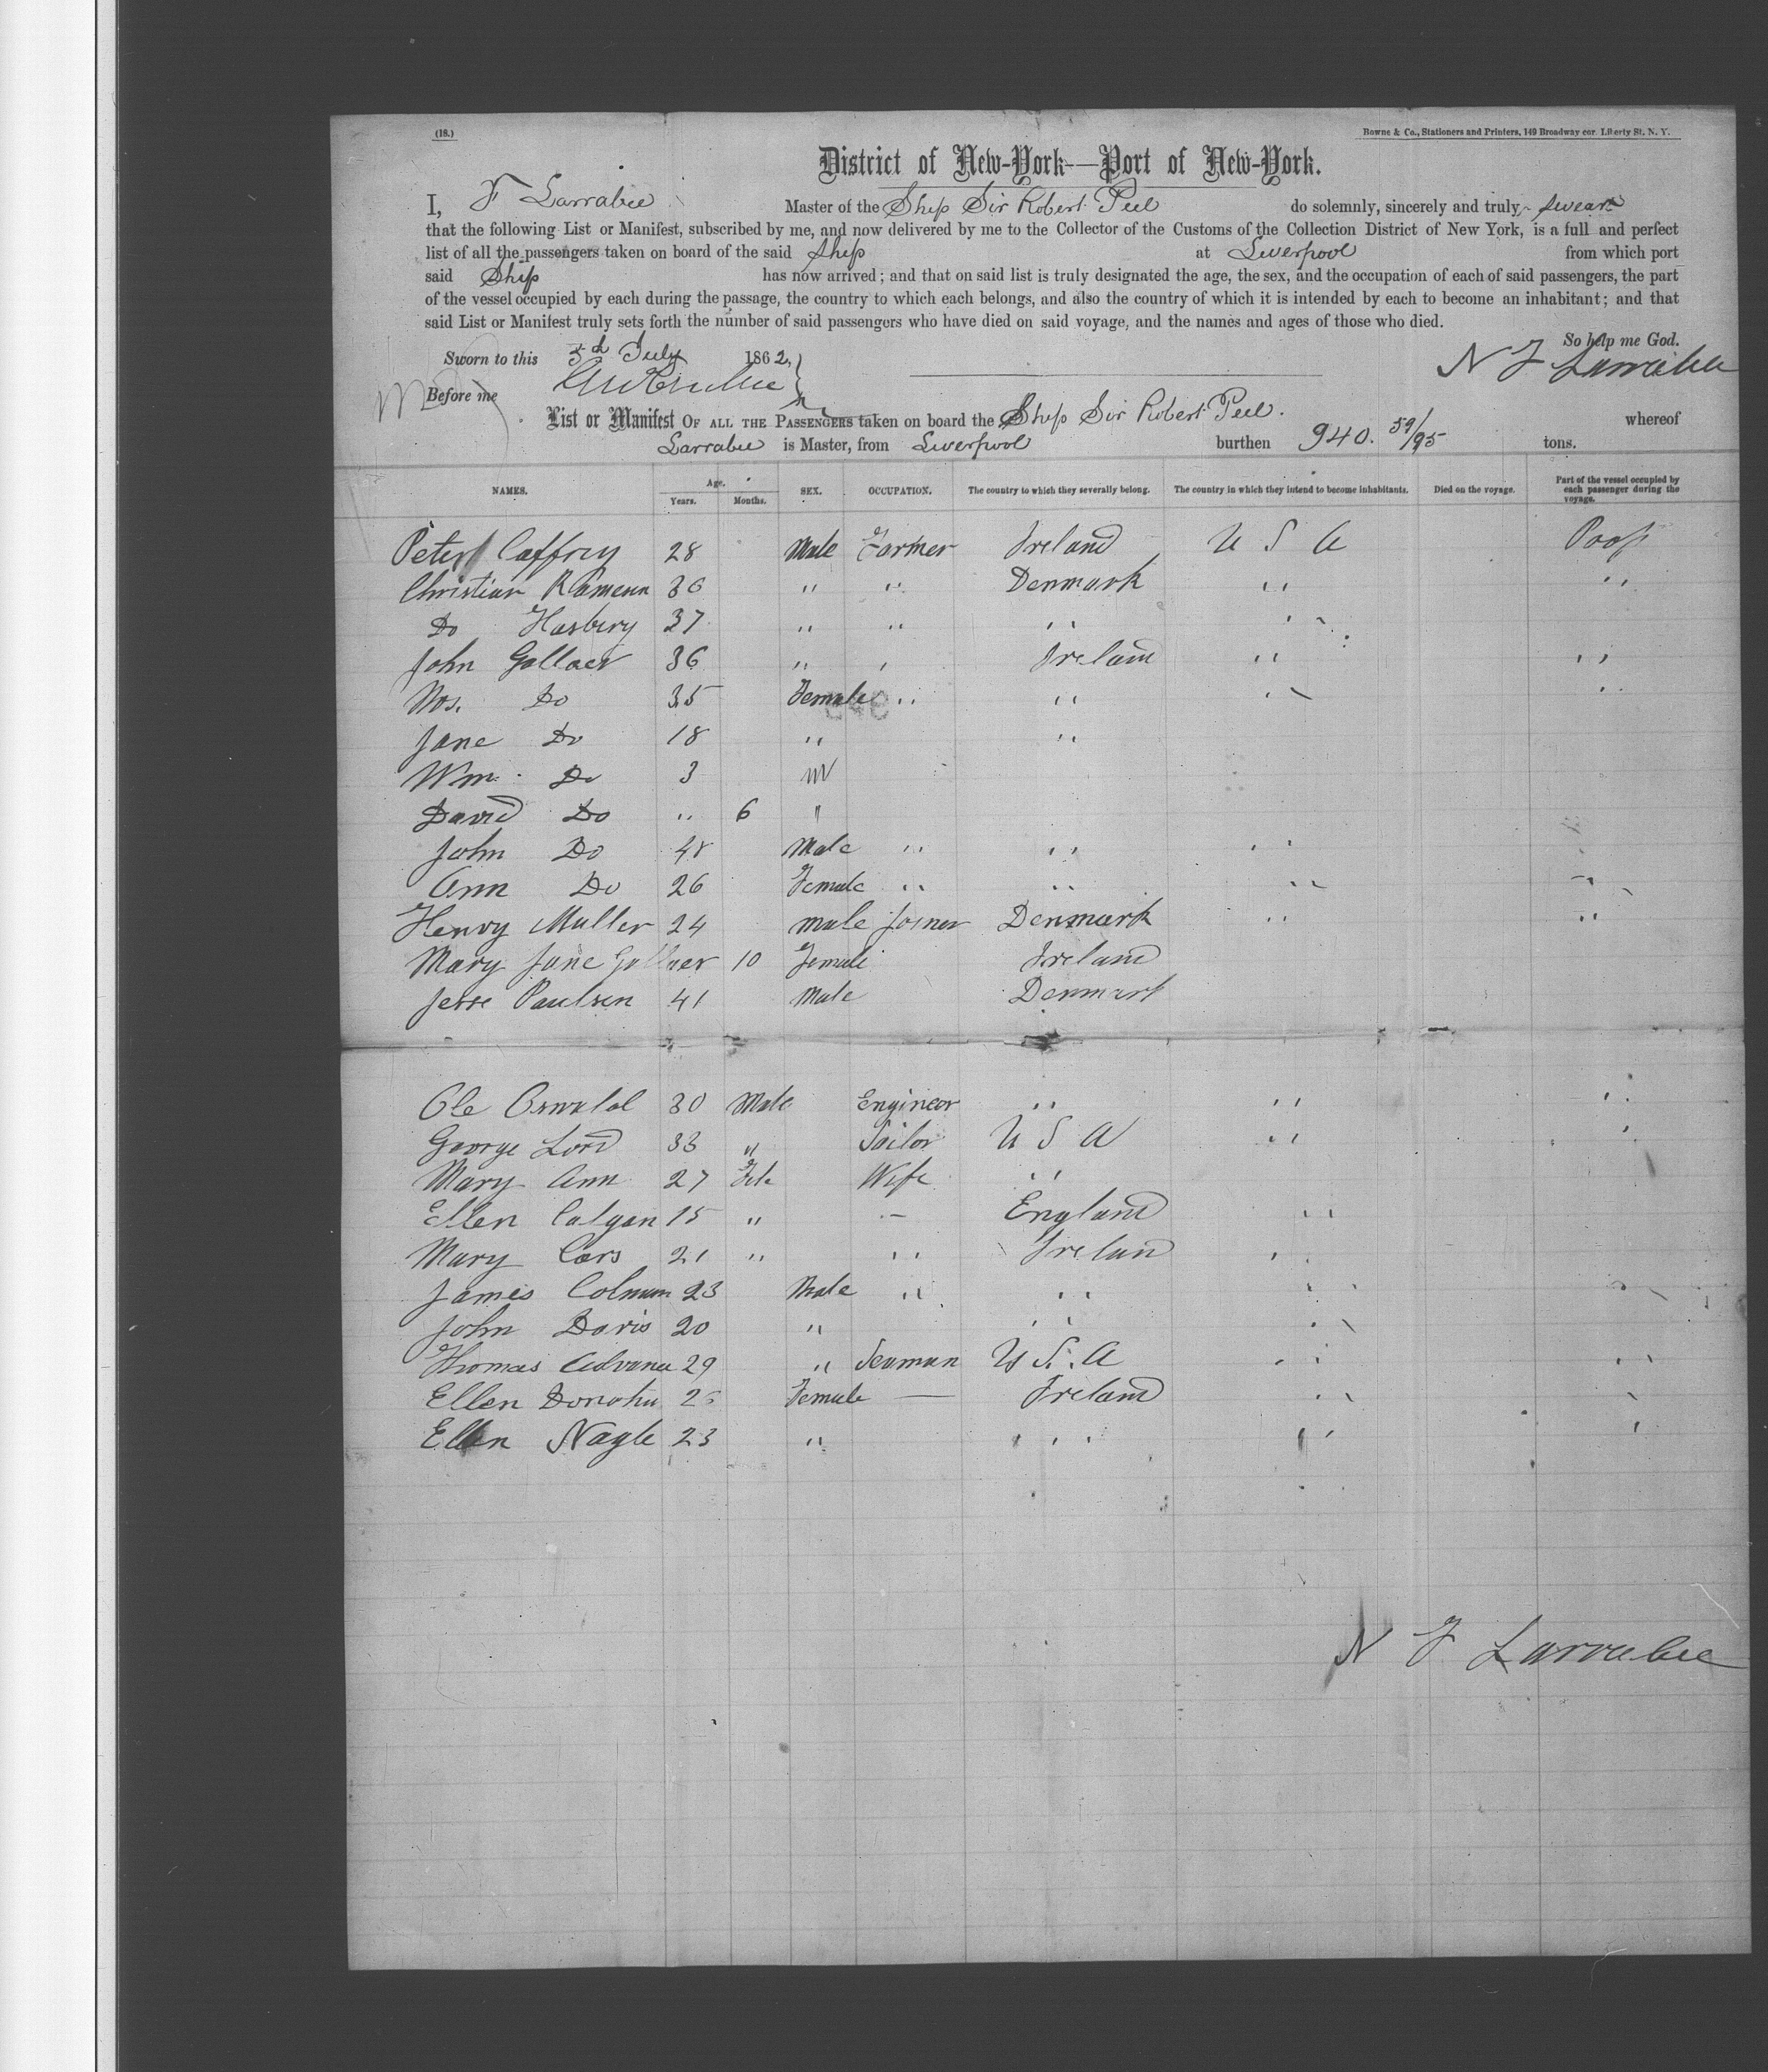 (18.)
Bowne & Co., Stationers and Printers, 149 Broadway cor. Liberty St. N. Y.
District of New-York—Port of New-York.
I, F Larrabee Master of the Ship Sir Robert Peel do solemnly, sincerely and truly swear
that the following List or Manifest, subscribed by me, and now delivered by me to the Collector of the Customs of the Collection District of New York, is a full and perfect
list of all the passengers taken on board of the said Ship at Liverpool from which port
said Ship has now arrived; and that on said list is truly designated the age, the sex, and the occupation of each of said passengers, the part
of the vessel occupied by each during the passage, the country to which each belongs, and also the country of which it is intended by each to become an inhabitant; and that
said List or Manifest truly sets forth the number of said passengers who have died on said voyage, and the names and ages of those who died.
So help me God.
Sworn to this 5th July 1862, N F Larrabee
Before me
List or Manifest OF ALL THE PASSENGERS taken on board the Ship Sir Robert Peel. whereof
Larrabee is Master, from Liverpool burthen 940. 59/95 tons.
NAMES. Age. Years. Months. SEX. OCCUPATION. The country to which they severally belong. The country in which they intend to become inhabitants. Died on the voyage. Part of the vessel occupied by each passenger during the voyage.
Peter Caffrey 28 Male Farmer Ireland U S A Poop
Christian 36 " " Denmark " "
Do Hasbery 37 " " " "
John Gollaer 36 " " Ireland " "
Mrs. Do 35 Female " " " "
Jane Do 18 " "
Wm. Do 3 M
David Do " 6 "
John Do 48 Male " " "
Ann Do 26 Female " " " "
Henry Muller 24 Male Joiner Denmark " "
Mary Jane Gollaer 10 Female Ireland
Jesse Paulsen 41 Male Denmark
Ole 30 Male Engineer " " "
George Lord 33 " Sailor U S A " "
Mary Ann 27 Fele Wife "
Ellen Calgan 15 " — England "
Mary Cars 21 " " Ireland "
James Colmum 23 Male " " " "
John Davis 20 " " "
Thomas 29 " Seaman U S. A " "
Ellen Donohu Female — Ireland " "
Ellen Nagle 23 " " " "
N F Larrabee